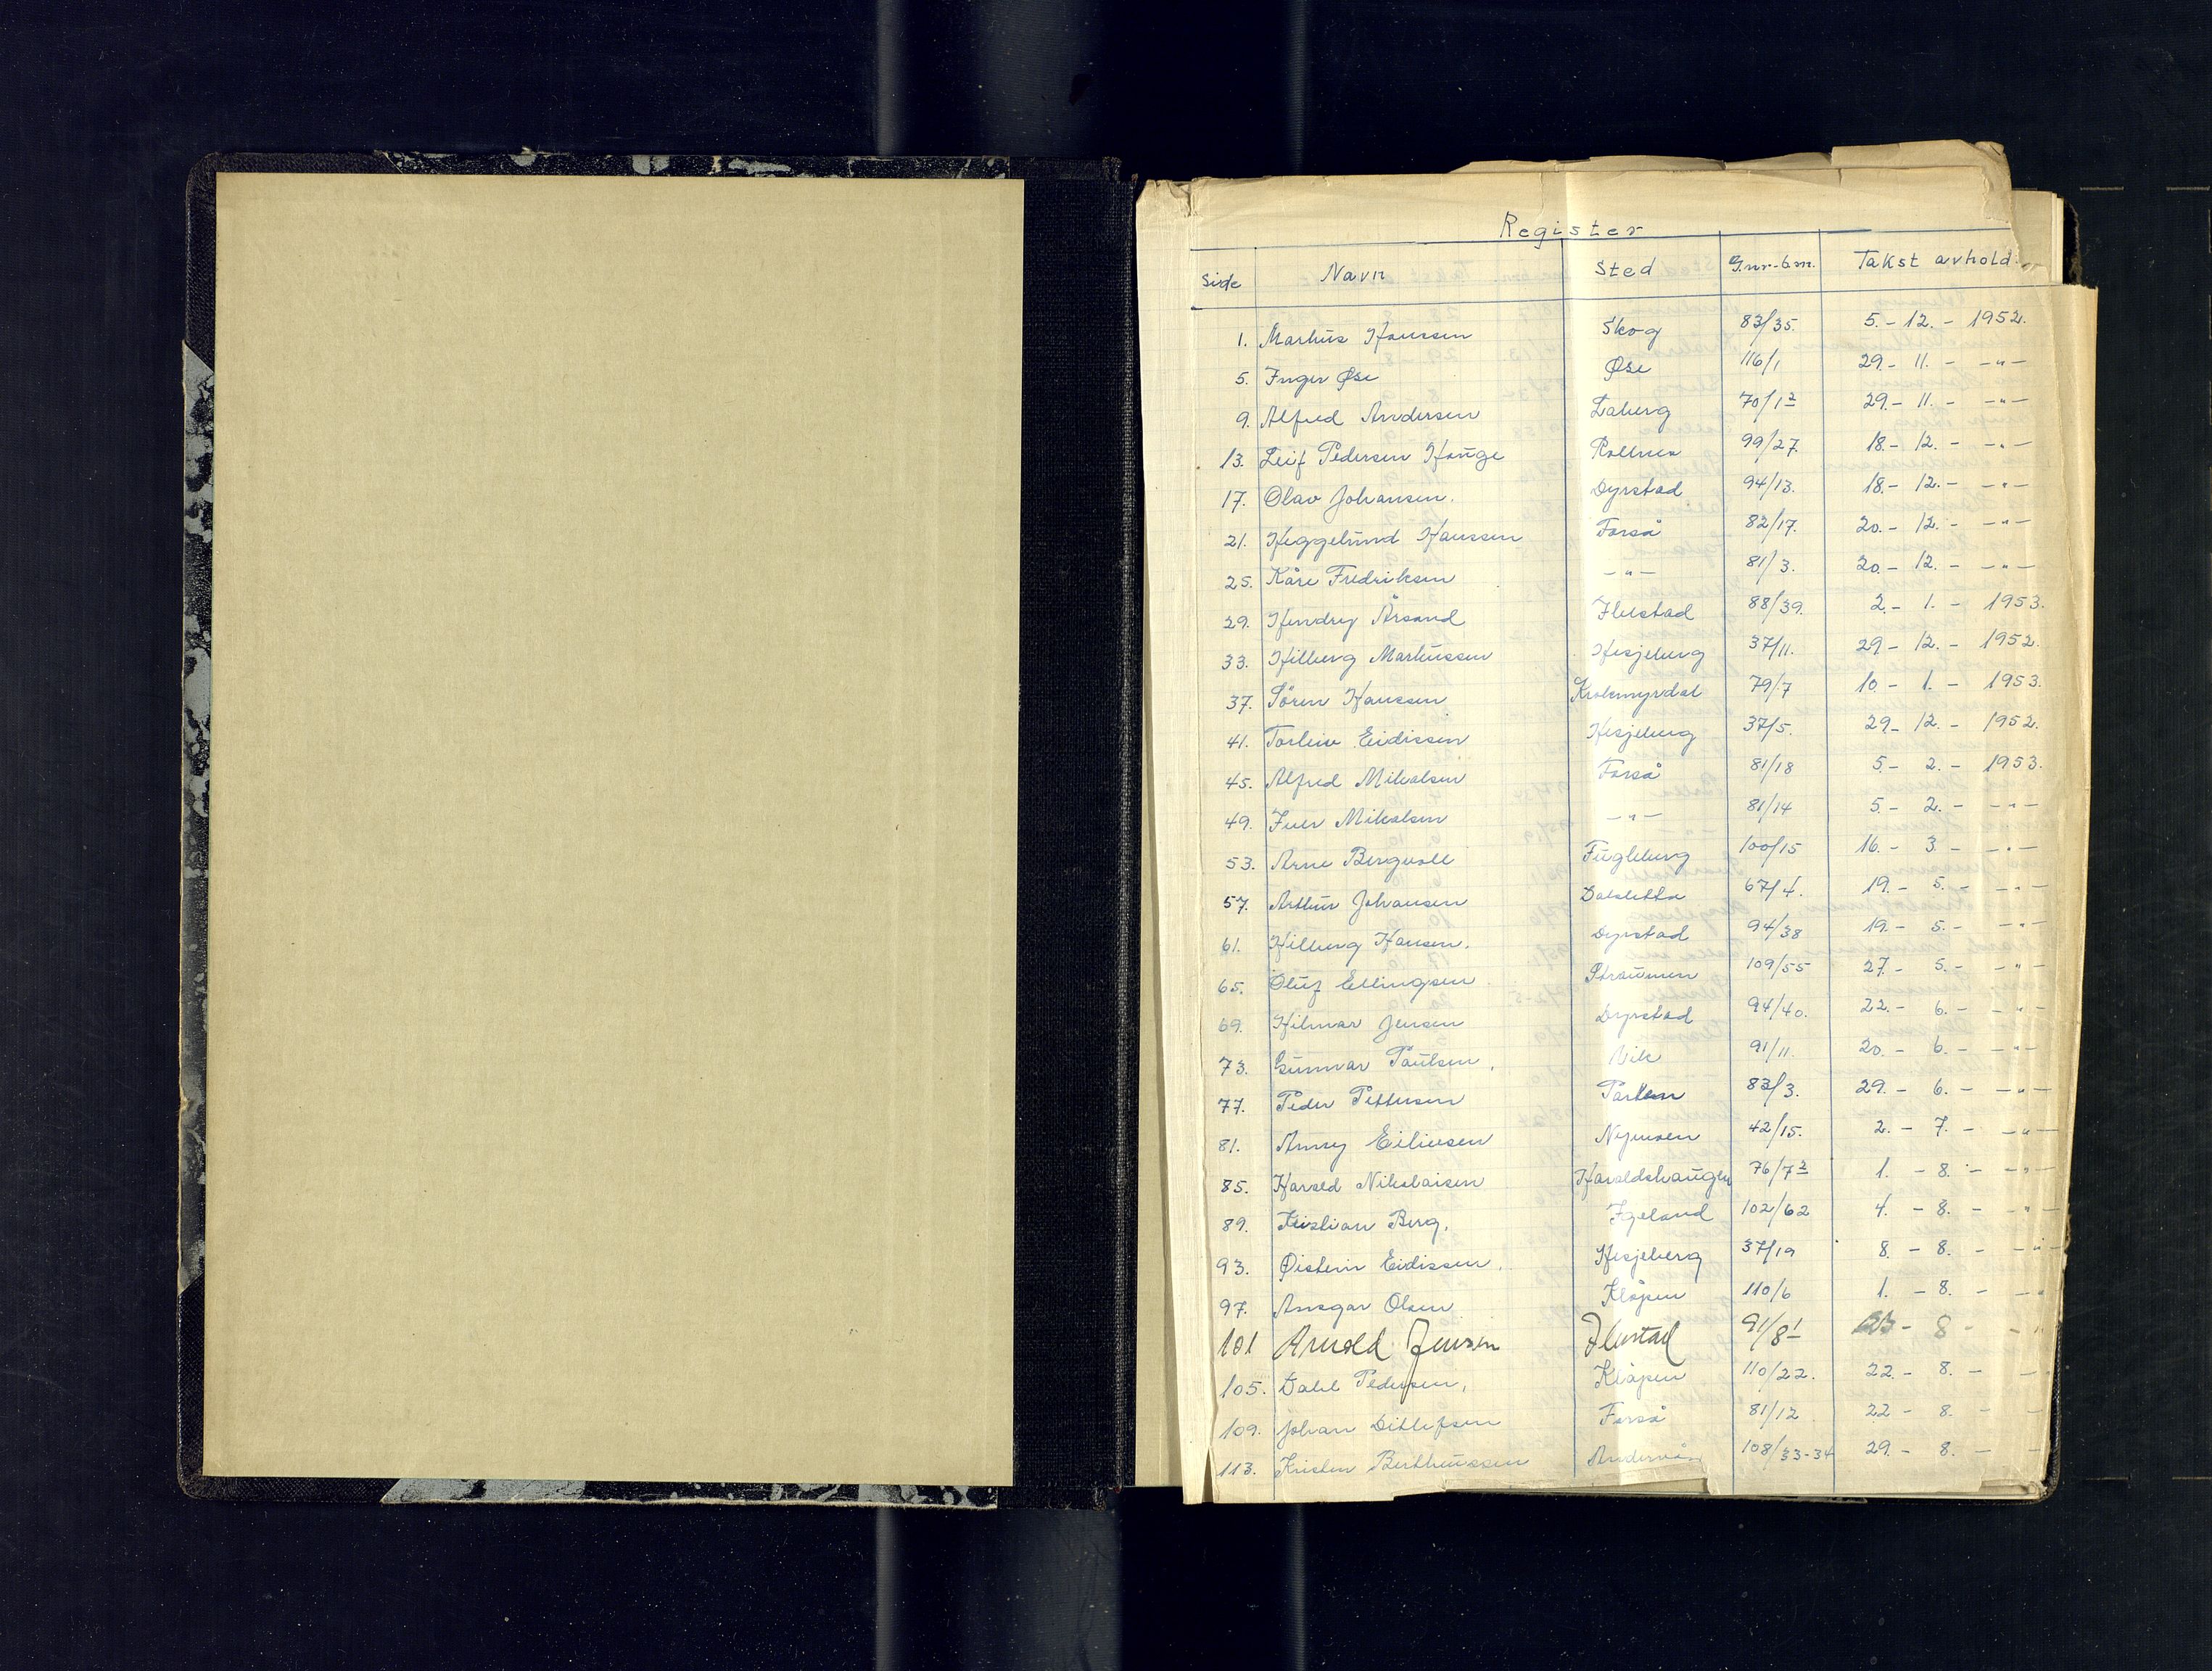 Register
Side Navn Sted G.nr-b.nr. Takst avhold.
1. Markus Hanssen Skog 83/35. 5.- 12. - 1952.
5. Inger Øse Øse 116/1 29.- 11. - -"-
9. Alfred Andersen Laberg 70/12 29.- 11. - -"-
13. Leif Pedersen Hauge Rollnes 99/27. 18.- 12. - -"-
17. Olav Johansen. Dyrstad 94/13. 18.- 12. - -"-
21. Heggelund Hanssen Forså 82/17. 20.- 12. - -"-
25. Kåre Fredriksen -"- 81/3. 20.- 12. - -"-
29. Hendry Årsand Ibestad 88/39. 2.- 1. - 1953.
33. Hilberg Markussen Hesjeberg 37/11. 29.- 12. - 1952.
37. Sören Hanssen Krokmyrdal 79/7 10.- 1. - 1953.
41. Torleiv Eidissen Hesjeberg 37/5. 29.- 12. - 1952.
45. Alfred Mikalsen Forså 81/18 5.- 2. - 1953.
49. Iver Mikalsen -"- 81/14 5.- 2. - -"-
53. Arne Bergvoll Fugleberg 100/15 16.- 3. - -"-
57. Arthur Johansen Dalsletta 67/4. 19.- 5. - -"-
61. Hilberg Hansen. Dyrstad 94/38 19.- 5. - -"-
65. Oluf Ellingsen Straumen 109/55 27.- 5. - -"-
69. Hilmar Jensen Dyrstad 94/40. 22.- 6. - -"-
73. Gunnar Paulsen. Vik 91/11. 20.- 6. - -"-
77. Peder Pettersen 83/3. 29.- 6. - -"-
81. Anny Eilivsen Nymoen 42/15. 2.- 7. - -"-
85. Harald Nikolaisen Haraldshaugen 76/72 1. - 8. - -"-
89. Kristian Berg. Igeland 102/62 4. - 8. - -"-
93. Øistein Eidissen. Hesjeberg 37/19 8. - 8. - -"-
97. Ansgar Olsen Kløpen 110/6 1. - 8. - -"-
101 Arnold Jensen Ibestad 91/81 - 8 - -"
105. Dahl Pedersen. Kløpen 110/22. 22.- 8. - -
109. Johan Ditlefsen Forså 81/12 22 - 8. - -
113. Kristen Bertheussen Andervåg 108/33-34 29.- 8. - -